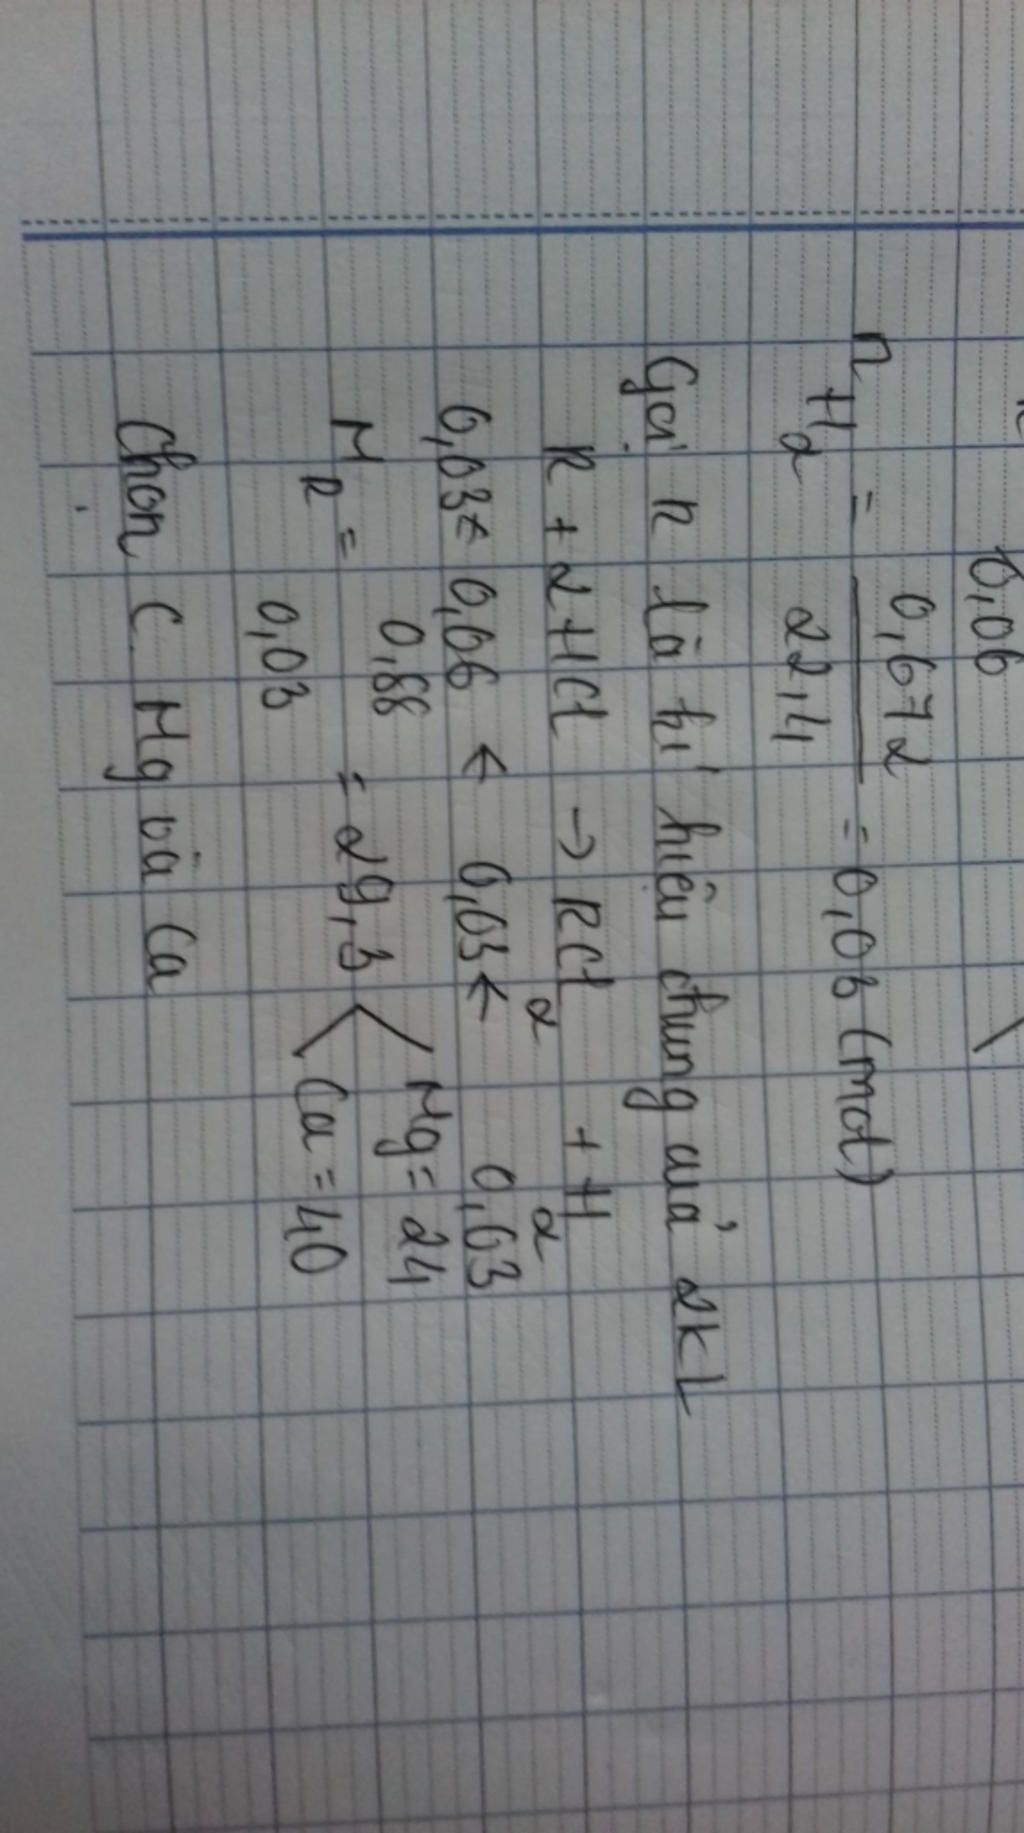 0,06
n H2 = 0,672 / 22,4 = 0,03 (mol)
Gọi R là kí hiệu chung của 2KL
R + 2HCl → RCl2 + H2
0,03 ← 0,06 ← 0,03 ← 0,03
M R = 0,88 / 0,03 = 29,3 < Mg = 24
Ca = 40
Chọn C. Mg và Ca